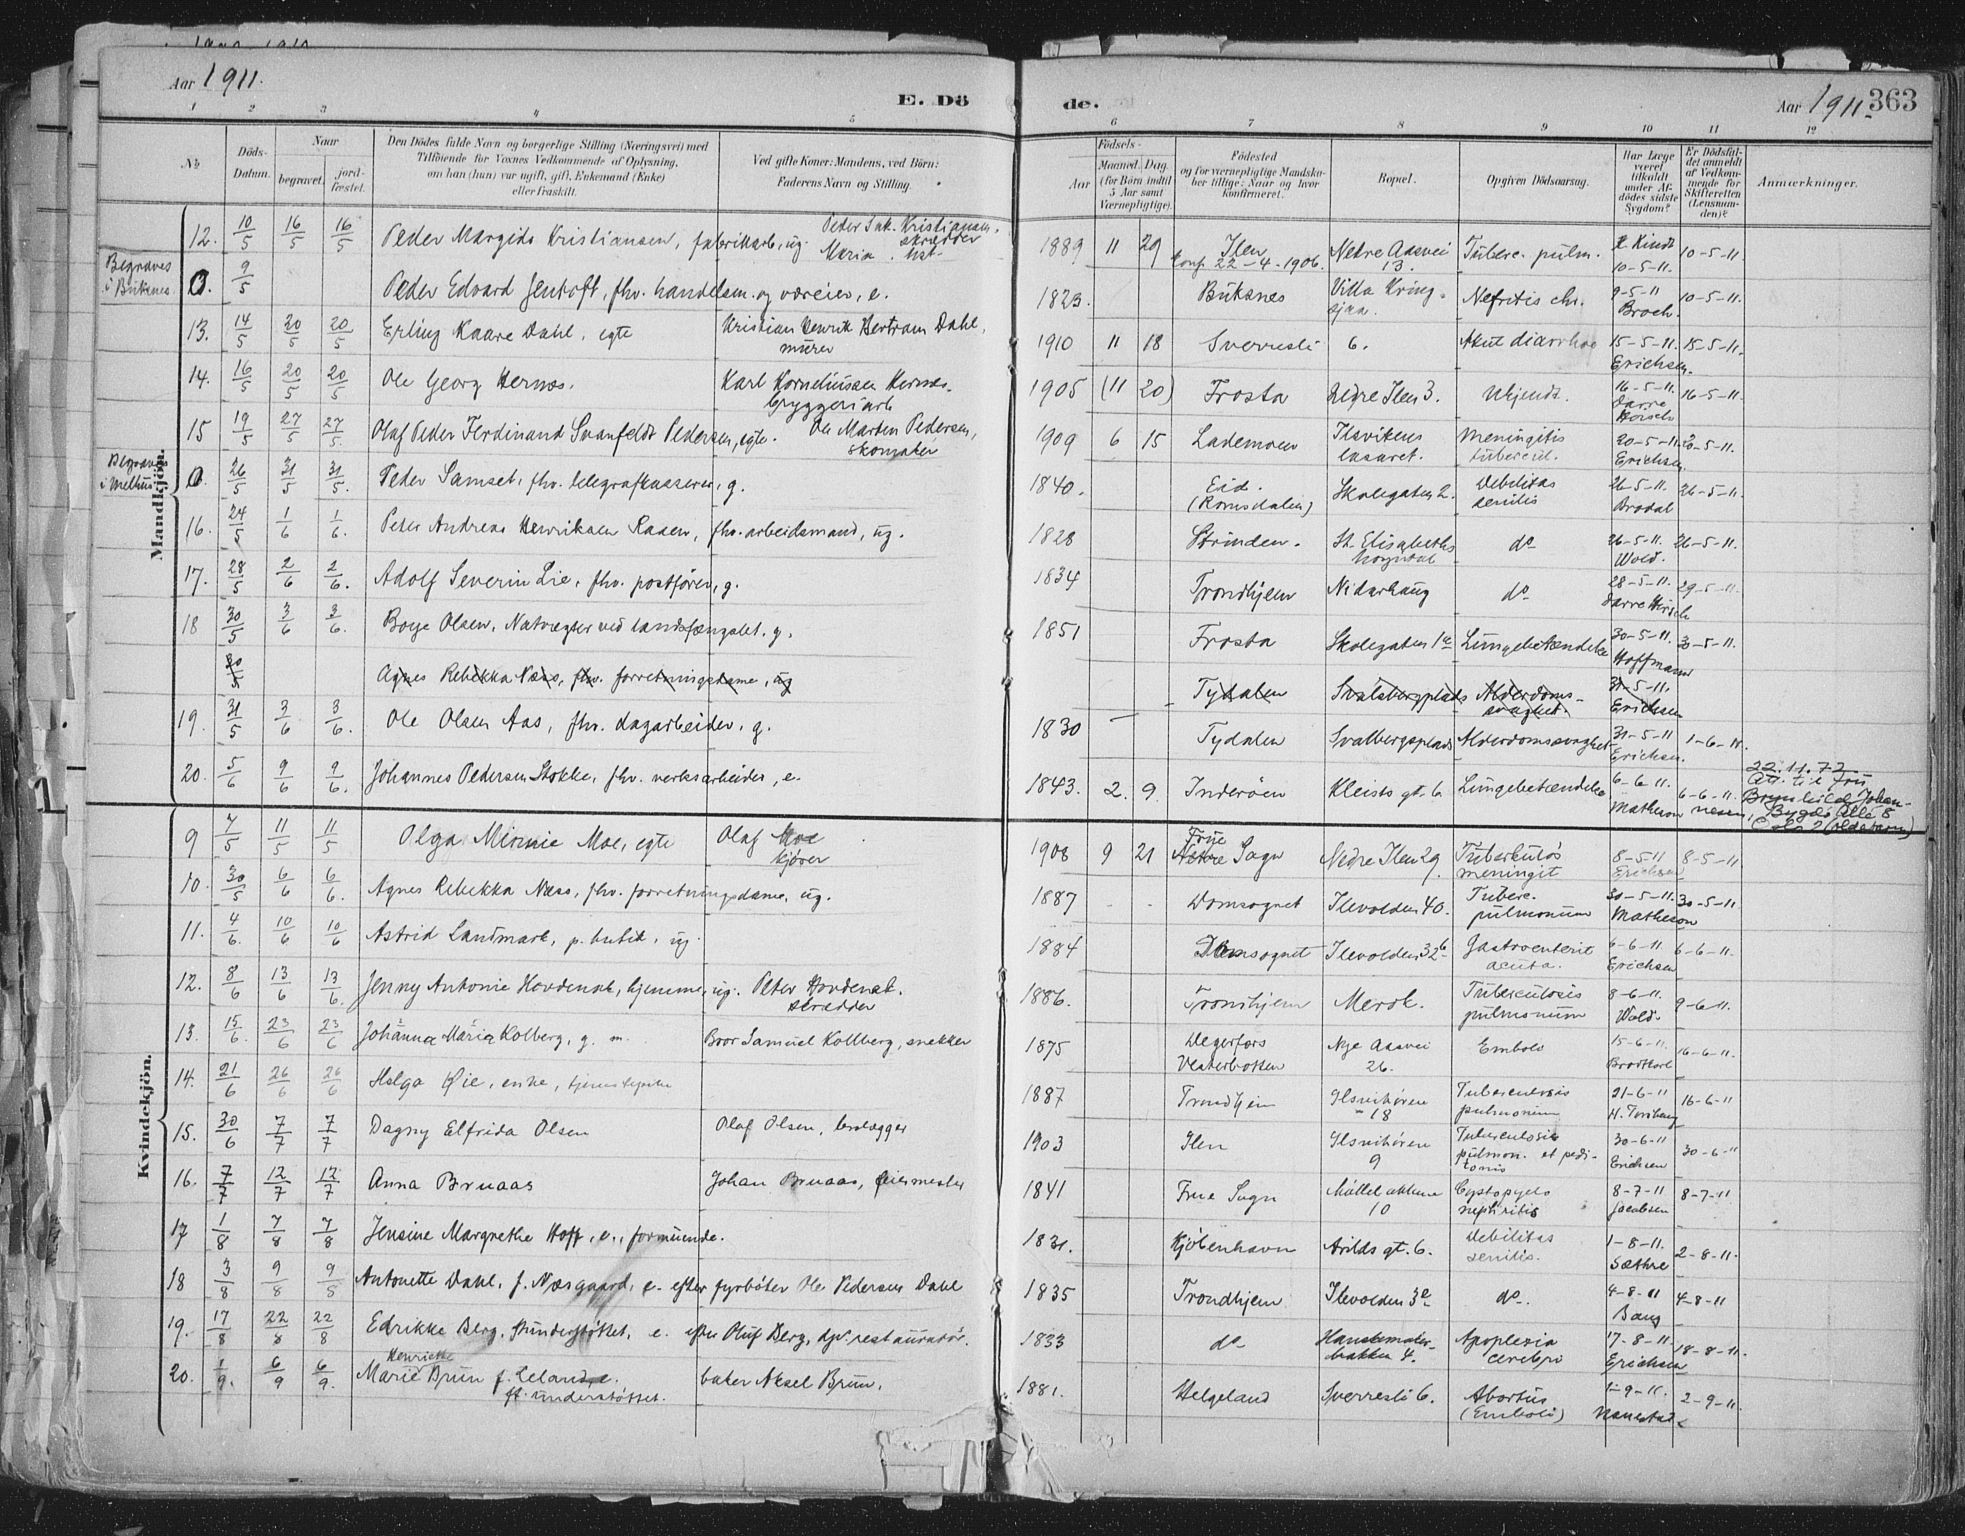 Aar 1911.
E. Dö
de.
Aar 1911. 363
1 2 3 4 5 6 7 8 9 10 11 12
No
Döds-Datum.
Naar begravet. jordfæstet.
Den Dödes fulde Navn og borgerlige Stilling (Næringsvei) med Tilföiende for Voxnes Vedkommende af Oplysning, om han (hun) var ugift, gift, Enkemand (Enke) eller fraskilt.
Ved gifte Koner: Mandens, ved Börn: Faderens Navn og Stilling.
Födsels-
Aar Maaned. Dag. (for Börn indtil 5 Aar samt Værnepligtige).
Födested og for værnepligtige Mandskaber tillige: Naar og hvor konfirmeret.
Bopæl.
Opgiven Dödsaarsag.
Har Læge været tilkaldt under Afdödes sidste Sygdom?
Er Dödsfaldet anmeldt af Vedkommende for Skifteretten (Lensmanden)?
Anmærkninger.
Mandkjön.
12. 10/5 16/5 16/5 Peder Margido Kristiansen, fabrikarb, ug. Kristiansen, skrædder Maria 1889 11 29 Ilen Conf. 22-4-1906. Nedre Aasvei 13. Tuberc. pulm. Kindt 10-5-11. 10-5-11.
Begraves i Buksnes 0. 9/5 Peder Edvard Jentoft, fhv. handelsm. og væreier, e. 1823. Buksnes Villa Kringsjaa. Nefritis chr. 9-5-11 Broch. 10-5-11.
13. 14/5 20/5 20/5 Erling Kaare Dahl, egte Kristian Henrik Bertram Dahl, murer 1910 11 18 Sverresli 6. Akut diarrhoe 15-5-11. Erichsen. 15-5-11.
14. 16/5 20/5 20/5 Ole Georg Hernæs. Karl Korneliussen Hernæs. bryggeriarb 1905 (11 20) Frosta Nedre Ilen 3. Ukjendt. 16-5-11. 16-5-11.
15 19/5 27/5 27/5. Olaf Peder Ferdinand Svanfeldt Pedersen, egte. Ole Marten Pedersen, skomaker 1909 6 15 Lademoen Ilsvikens lasaret. Meningitis tubercul. 20-5-11. Erichsen. 20-5-11.
Begraves i Melhus 0. 26/5 31/5 31/5. Peder Samset, fhv. telegrafkasserer, g. 1840. Eid. (Romsdalen) Skolegaten 2. Debilitas senilis 26-5-11. Brodal 26-5-11.
16. 24/5 1/6 1/6. Peter Andreas Henriksen Raaen, fhv. arbeidsmand, ug. 1828 Strinden. St. Elisabeths hospital do 26-5-11. Wold. 26-5-11.
17. 28/5 2/6 2/6. Adolf Severin Lie, fhv. postfører, g. 1834 Trondhjem Nidarhaug do 28-5-11. Darre Hirsch 29-5-11.
18 30/5 3/6 3/6. Boye Olsen, Natvægter ved landsfængslet. g. 1851 Frosta Skolegaten 1a Lungebetændelse 30-5-11. Hoffmann 30-5-11.
30/5 Agnes Rebekka Næss, fhv. forretningsdame, ug Tydalen Svalsbergplads Alderdomssvaghet. 31-5-11. Erichsen
19. 31/5 3/6 3/6. Ole Olsen Aas, fhv. dagarbeider, g. 1830 Tydalen Svalbergsplads Alderdomssvaghet 31-5-11 Erichsen. 1-6-11.
20. 5/6 9/6 9/6. Johannes Pedersen Stokke, fhv. verksarbeider, e. 1843. 2. 9. Inderøen Kleists gt. 6 Lungebetændelse 6-6-11. Matheson 6-6-11. 22.11.72 Att. til Fru Brynhild Johannesen, Bygdø Allé 8 Oslo 2 (oldebarn)
Kvindekjön.
9 7/5 11/5 11/5 Olga Minnie Moe, egte Olaf Moe kjører 1908 9 21 Frue Sogn Nedre Ilen 29. Tuberkuløs meningit 8-5-11 Erichsen 8-5-11
10. 30/5 6/6 6/6. Agnes Rebekka Næss, fhv. forretningsdame, ug. 1887 - - Domsognet Ilevolden 40. Tuberc. pulmonum 30-5-11. Matheson 30-5-11.
11. 4/6. 10/6 10/6 Astrid Landmark, p. butik, ug 1884 Domsognet Ilevolden 32b Gastroenterit acuta. 6-6-11. Erichsen 6-6-11.
12. 8/6 13/6 13/6. Jenny Antonie Hovdenak, hjemme, ug. Peter Hovdenak. skrædder 1886. Trondhjem Merok. Tuberculosis pulmonum 8-6-11. Wold. 9-6-11.
13. 15/6. 23/6 23/6 Johanna Maria Kolberg, g. m. Boor Samuel Kollberg, snekker 1875 Degerfors Vesterbotten Nye Aasvei 26. Emboli 15-6-11. 16-6-11.
14. 21/6 26/6 26/6 Helga Øie, enke, tjenestepike 1887 Trondhjem Ilsvikøren 18 Tuberculosis pulmonum 21-6-11 16-6-11
15. 30/6 7/7 7/7 Dagny Elfrida Olsen Olaf Olsen, brolægger 1903 Ilen Ilsvikøren 9 Tuberculosis pulmon. et peditonis 30-6-11 Erichsen 30-6-11
16. 7/7 12/7 12/7 Anna Bruaas Johan Bruaas, feiermester 1841 Frue Sogn Møllebakken 10 Cystopyelonephritis 8-7-11 Jacobsen 8-7-11
17 1/8 7/8 7/8 Jensine Margrethe Hoff, e., formuende. 1831. Kjøbenhavn Arilds gt. 6. Debilitas senilis. 1-8-11. Sæthre 2-8-11.
18 3/8 9/8 9/8 Antonette Dahl, f. Næsgaard, e. efter fyrbøter Ole Pedersen Dahl 1835 Trondhjem Ilevolden 3e do. 4-8-11 Bang 4-8-11
19. 17/8 22/8 22/8 Edrikke Berg, funderstøttet, e. efter Oluf Berg, dpv. restauratør. 1833 do bakken 4. Apoplexia cerebri 17-8-11. Erichsen 18-8-11.
20. 1/9. 6/9 6/9. Marie Henriette Brun f. Leland, e. ff. understøttet. baker Aksel Brun. 1881. Helgeland Sverresli 6. Abortus (Emboli) 1-9-11. 2-9-11.